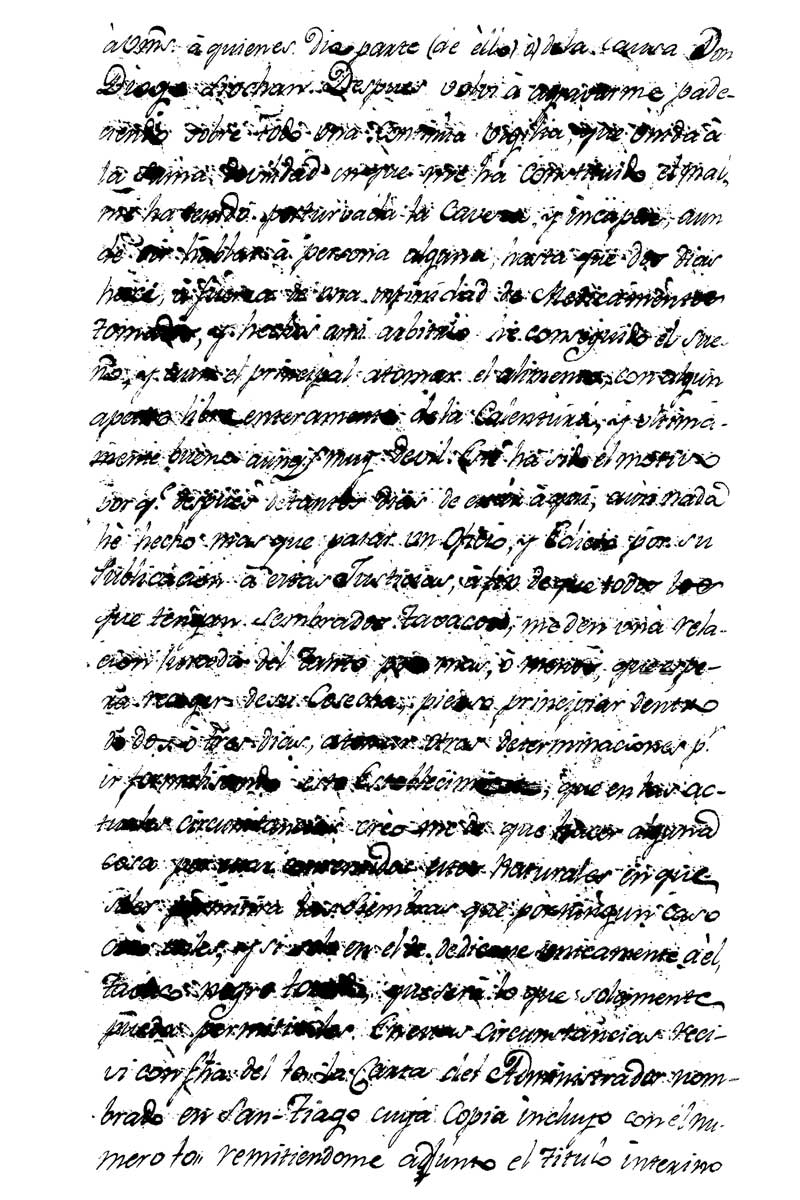 à Vms. à quienes dio parte (de èllo) ò) dela causa Don
Diego Brochan. Despues volvi à agravarme, pade-
ciendo sobre todo una continua vigilia, que unida à
la suma devilidad en que me ha constituido el mal,
me ha tenido perturvada la Caveza, y incapaz, aun
de oir hablar à persona alguna, hasta que dos dias
hace, à fuerza de una infinidad de Medicamentos
tomados, y hechos ami arbitrio he conseguido el sue-
ño, y aun el principal atomar el alimento, con algun
apetito libre enteramente de la Calentura, y ultima-
mente bueno aunq.e muy devil. Este ha sido el motivo
por q.e despues detantos dias de estàr àqui, aun nada
hè hecho mas que pasar un Oficio, y Edicto por su
Publicacion à estas Justicias, à fin deque todos los
que tengan Sembrados Tavacos, me den una rela-
cion jurada del tanto mas, ò menos, que espe-
ran recoger desu Cosecha, pienso principiar dentro
de dos, ò tres dias, atomar otras determinaciones p.a
ir formalisando este Establecimiento, que en las ac-
tuales circunstancias creo me de que hacer alguna
cosa por estar consentidos estos Naturales en que
seles permitira las Siembras que por ningun caso
en el de dedicarse unicamente à èl,
Tavaco negro que serà lo que solamente
pueda permitirseles. En estas circunstancias reci-
vi con fha. del la Carta del Administrador nom-
brado en San-Tiago cuya Copia incluyo con èl nu-
mero remitiendome adjunto el Titulo interino